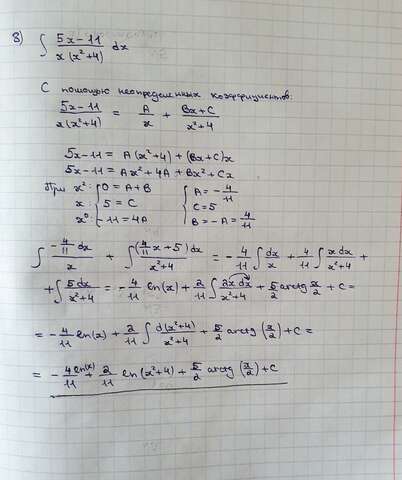 8) ∫ (5x-11)/(x(x²+4)) dx
С помощью неопределенных коэффициентов:
(5x-11)/(x(x²+4)) = A/x + (Bx+C)/(x²+4)
5x-11 = A(x²+4) + (Bx+C)x
5x-11 = Ax²+4A+Bx²+Cx
При x²: { 0 = A+B { A = -4/11
x: { 5 = C { C=5
x⁰: { -11=4A { B = -A = 4/11
∫ (-4/11 dx)/x + ∫ ((4/11 x+5)dx)/(x²+4) = -4/11 ∫ dx/x + 4/11 ∫ (x dx)/(x²+4) +
+ ∫ (5 dx)/(x²+4) = -4/11 ln(x) + 2/11 ∫ (2x dx)/(x²+4) + 5/2 arctg x/2 + C =
= -4/11 ln(x) + 2/11 ∫ d(x²+4)/(x²+4) + 5/2 arctg (x/2) + C =
= -4/11 ln(x) + 2/11 ln(x²+4) + 5/2 arctg (x/2) + C